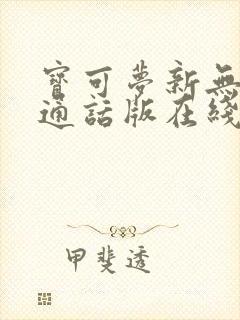 寶可夢新無
通話版在綫
甲斐透